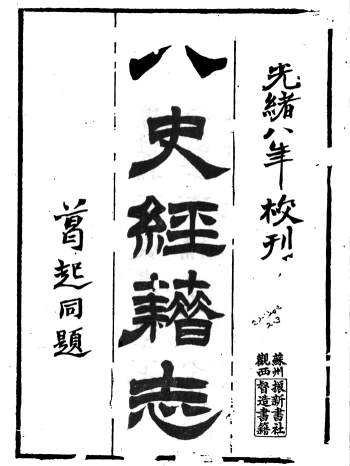 光緒八年校刊
八史經籍志
葛起同題
蘇州
觀西
振新書社
督造書籍